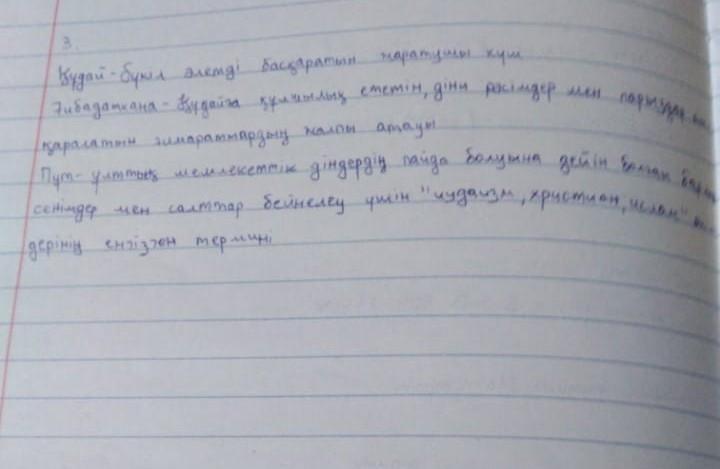 3.
Құдай - бүкіл әлемді басқаратын жаратушы күш
Ғибадатхана - Құдайға құлшылық ететін, діни рәсімдер мен
қаралатын ғимараттардың жалпы атауы
Пұт - ұлттық мемлекеттік діндердің пайда болуына дейін болған
сенімдер мен салттар бейнелеу үшін "иудаизм, христиан, ислам"
дерінің енгізген терміні